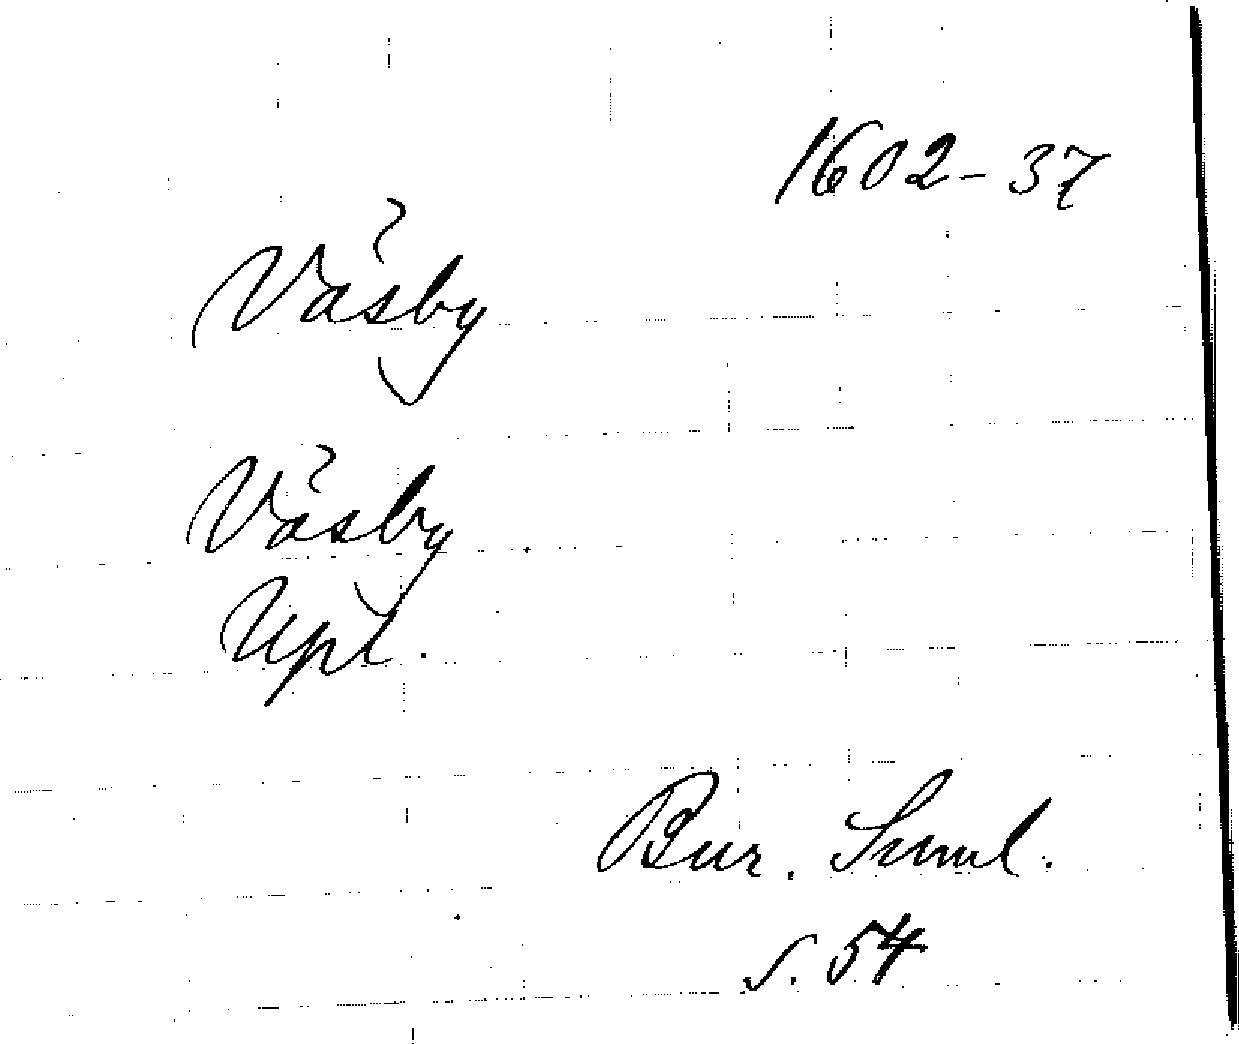 1602-37
Väsby
Väsby
Upl.
Bur. Suml.
s. 54